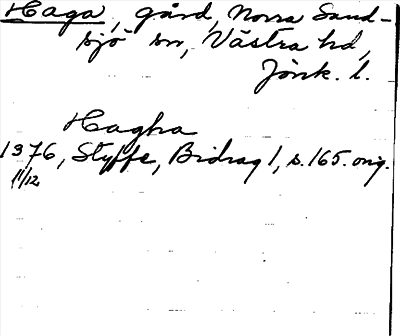 Haga, gård, Norra Sand-
sjö sn, Västra hd,
Jönk. l.
Hagha
1376, Styffe, Bidrag 1, s. 165. orig.
11/12